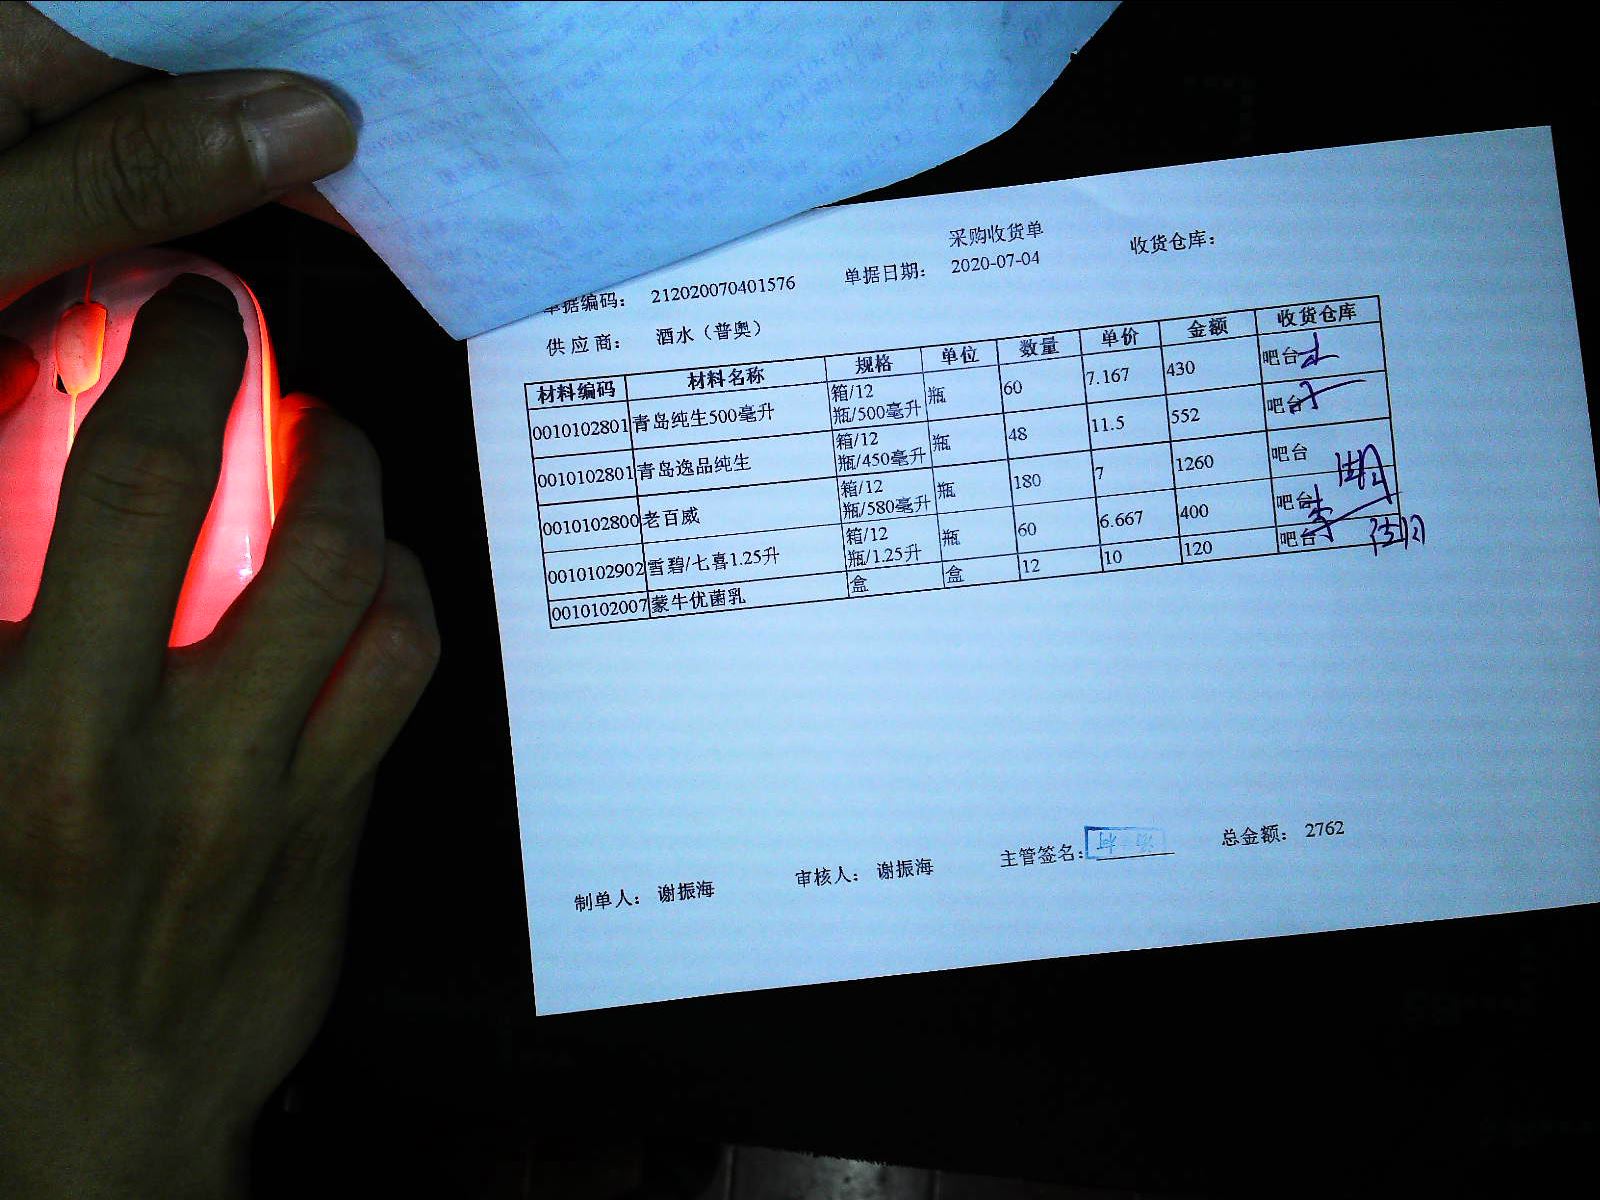 采购收货单
单据编码： 212020070401576 单据日期： 2020-07-04 收货仓库：
供 应 商： 酒水（普奥）
材料编码 材料名称 规格 单位 数量 单价 金额 收货仓库
0010102801 青岛纯生500毫升 箱/12瓶/500毫升 瓶 60 7.167 430 吧台
0010102801 青岛逸品纯生 箱/12瓶/450毫升 瓶 48 11.5 552 吧台
0010102800 老百威 箱/12瓶/580毫升 瓶 180 7 1260 吧台
0010102902 雪碧/七喜1.25升 箱/12瓶/1.25升 瓶 60 6.667 400 吧台
0010102007 蒙牛优菌乳 盒 盒 12 10 120 吧台
制单人： 谢振海 审核人： 谢振海 主管签名： 总金额： 2762